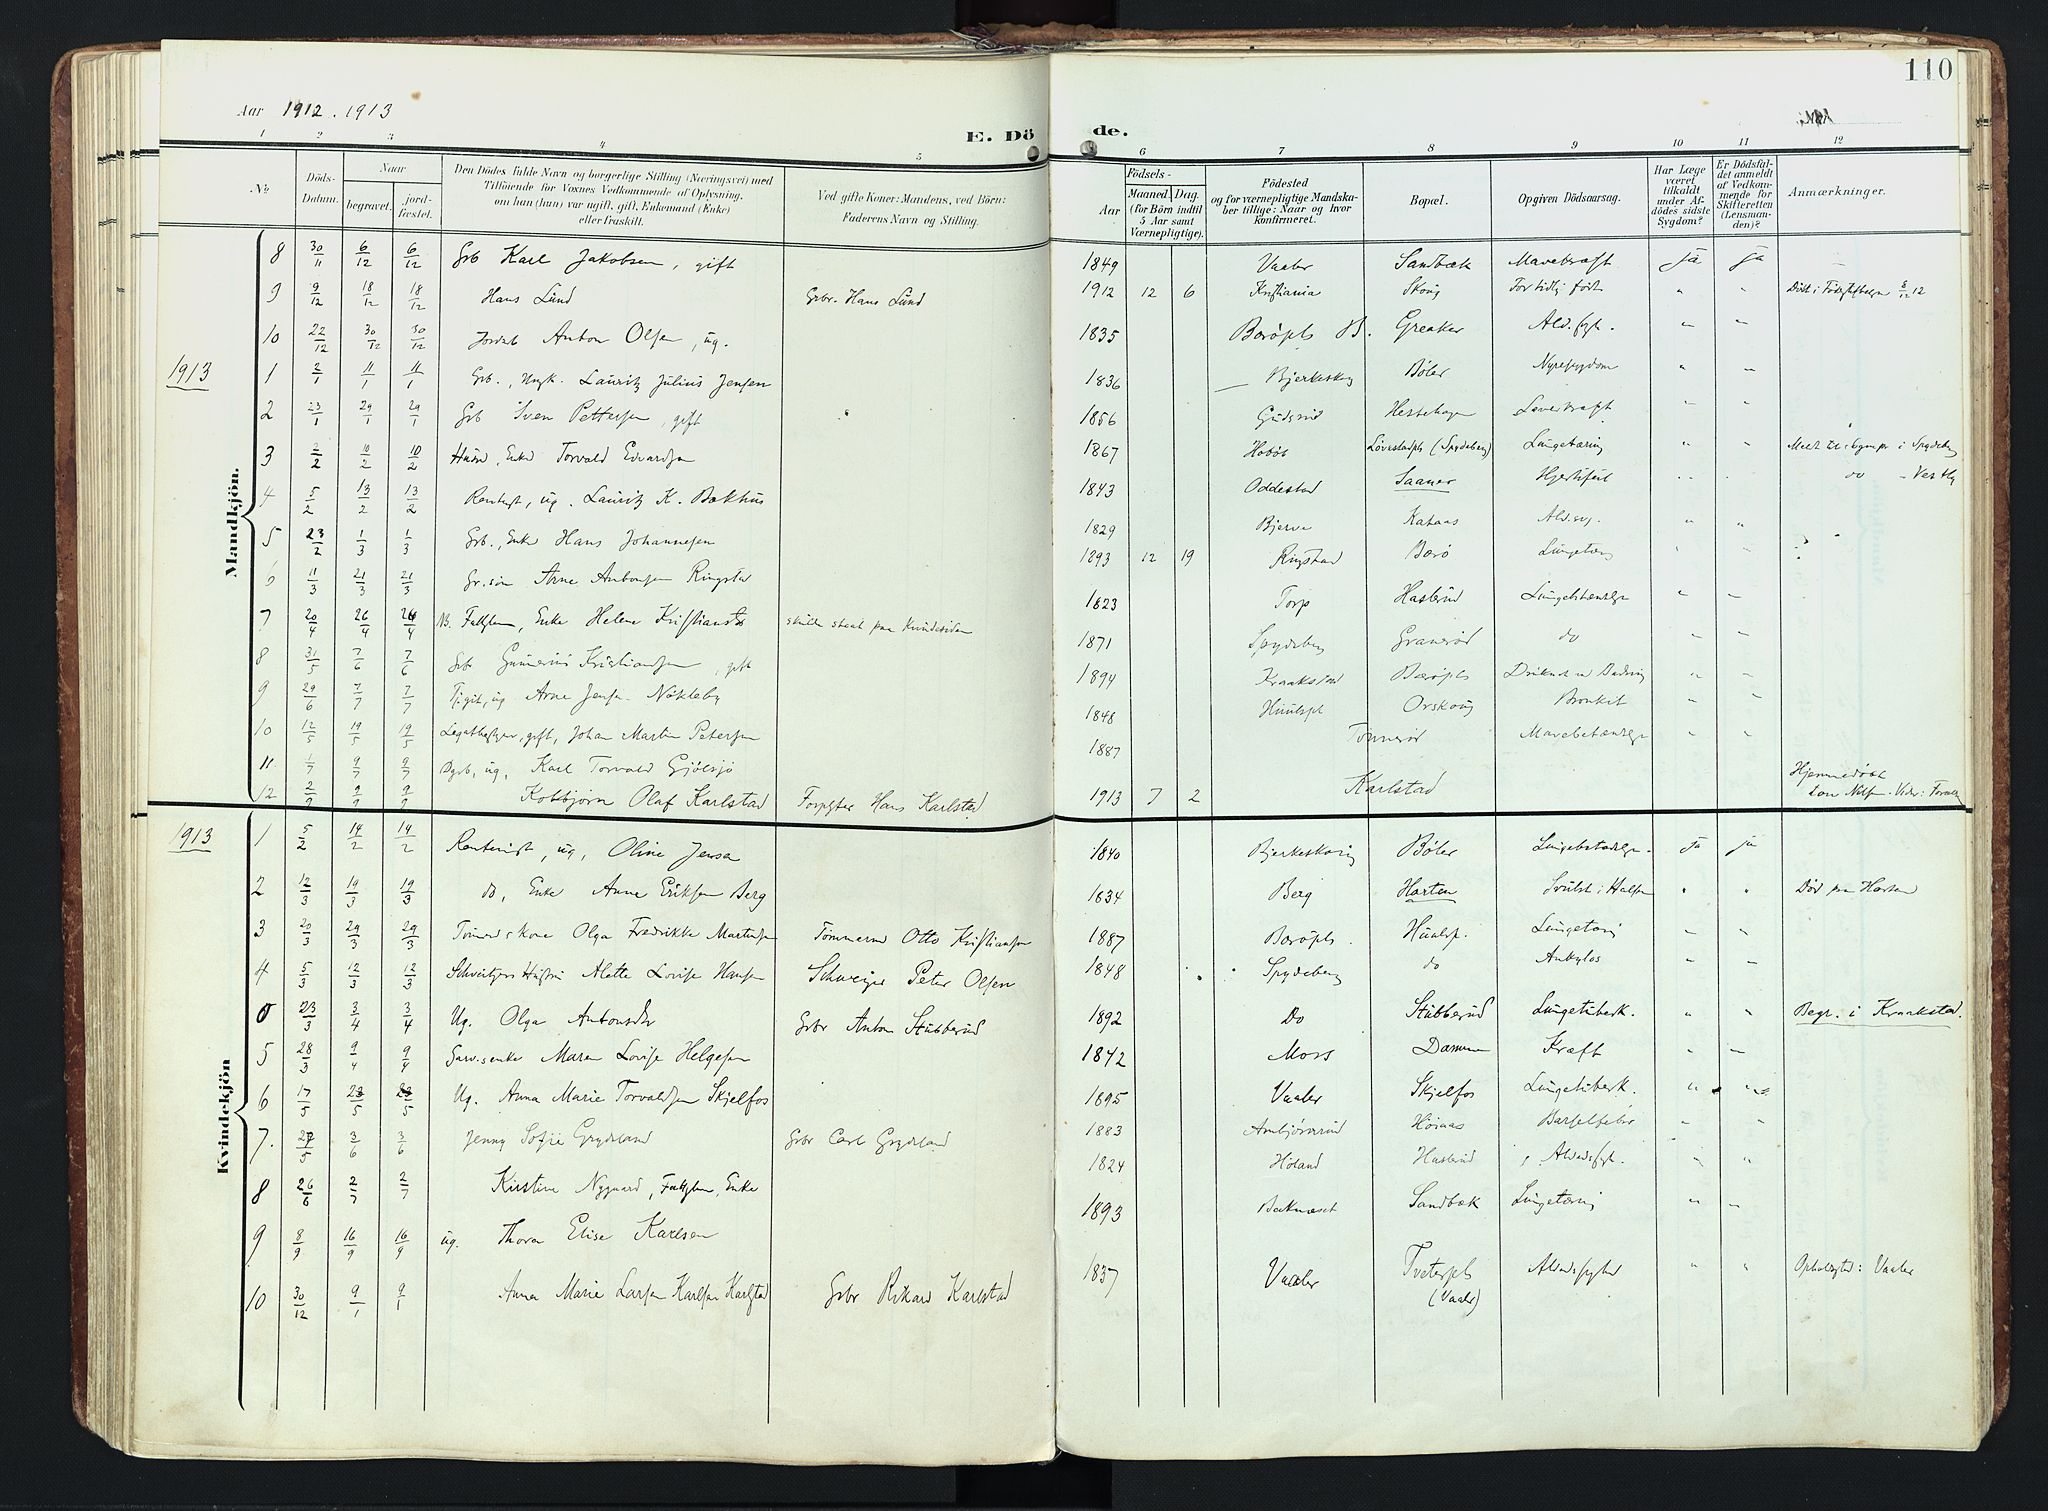 110
Aar 1912. 1913
E. Dö de.
1 2 3 4 5 6 7 8 9 10 11 12
No
Döds-Datum.
Naar
begravet.
jord-fæstet.
Den Dödes fulde Navn og borgerlige Stilling (Næringsvei) med
Tilföiende for Voxnes Vedkommende af Oplysning,
om han (hun) var ugift, gift, Enkemand (Enke)
eller fraskilt.
Ved gifte Koner: Mandens, ved Börn:
Faderens Navn og Stilling.
Födsels-
Aar
Maaned. Dag.
(for Börn indtil
5 Aar samt
Værnepligtige).
Födested
og for værnepligtige Mandska-
ber tillige: Naar og hvor
konfirmeret.
Bopæl.
Opgiven Dödsaarsag.
Har Læge
været
tilkaldt
under Af-
dödes sidste
Sygdom?
Er Dödsfal-
det anmeldt
af Vedkom-
mende for
Skifteretten
(Lensman-
den)?
Anmærkninger.
Mandkjön.
8 30/11 6/12 6/12 Grb Karl Jakobsen, gift 1849 Vaaler Sandbæk Mavekræft Ja Ja
9 9/12 18/12 18/12 Hans Lund Grbr. Hans Lund 1912 12 6 Kristiania Skoug For tidlig födt " " 8/12 12
10 22/12 30/12 30/12 Anton Olsen, ug. 1835 Greaker Ald.syk. " "
1913
1 2/1 11/1 11/1 Grb., Ungk. Lauritz Julius Jensen 1836 Bjerkeskog Böler Nyresygdom " "
2 23/1 29/1 29/1 Grb Sven Pettersen, gift 1856 Hestehagen Leverkræft " "
3 2/2 10/2 10/2 Torvald Edvardsen 1867 Hobøl (Spydeberg) Lungetæring " " i Spydeberg
4 5/2 13/2 13/2 Rentenist, ug. Lauritz K. Bakhus 1843 Oddestad Saaner Hjertefeil do
5 23/2 1/3 1/3 Grb., Enke Hans Johannesen 1829 Bjerve Kataas Ald.syg. " "
6 11/3 21/3 21/3 Gr.sön Arne Antonsen Ringstad 1893 12 19 Ringstad Borö Lungetæring " "
7 20/4 26/4 26/4 NB. Fattiglem, Enke Helene Kristiansdr skulde staat paa Kvindesiden 1823 Torp Haslerud Lungebetændelse " "
8 31/5 7/6 7/6 Grb Gunerius Kristiansen, gift 1871 Spydeberg Granerød do " "
9 29/6 7/7 7/7 Arne Jensen Nökleby 1894 Kraakstad Druknet v. Badning " "
10 12/5 19/5 19/5 gift, Johan Martin Petersen 1848 Orskoug Bronkit " "
11 1/7 9/7 9/7 ug, Karl Torvald Gjölsjö 1887 Tonnerød Mavebetændelse " "
12 2/9 9/9 9/9 Kolbjörn Olaf Karlstad Forpagter Hans Karlstad 1913 7 2 Karlstad Hjemmedöbt
Kvindekjön
1913
1 5/2 14/2 14/2 Rentenist, ug, Oline Jensen 1840 Bjerkeskoug Böler Lungebetændelse. Ja ja
2 12/3 19/3 19/3 do, Enke Anne Eriksen Berg 1834 Berg Haxten Svulst i Halsen " " Död paa Haxten
3 20/3 29/3 29/3 Olga Fredrikke Martinsen Tömmerm Otto Kristiansen 1887 Lungetæring " "
4 5/3 12/3 12/3 Alette Lovise Hansen Schweizer Peter Olsen 1848 Spydeberg do Ankylos " "
0 23/3 3/4 3/4 Ug. Olga Antonsdr Grbr Anton Stubberud 1892 Do Stubberud Lungetuberk. " " Begr. i Kraakstad.
5 28/3 9/4 9/4 Maren Lovise Helgesen 1842 Moss Dammen Kræft " "
6 17/5 23/5 23/5 Ug. Anna Marie Torvaldsen Skjelfos 1895 Vaaler Skjelfos Lungetuberk. " "
7. 27/5 3/6 3/6 Jenny Sofie Grydeland Grbr Carl Grydeland 1883 Høiaas Barselfeber " "
8 26/6 2/7 2/7 Kirstine Nygaard, Fattiglem, Enke 1824 Höland Haslerud Alderdomssyk. " "
9 8/9 16/9 16/9 ug. Thora Elise Karlsen 1893 Sandbæk Lungetæring " "
10 30/12 9/1 9/1 Anna Marie Larsen Karlsen Karlstad Grbr Rikard Karlstad 1837 Vaaler Tveterpl. (Vaaler) " " Vaaler